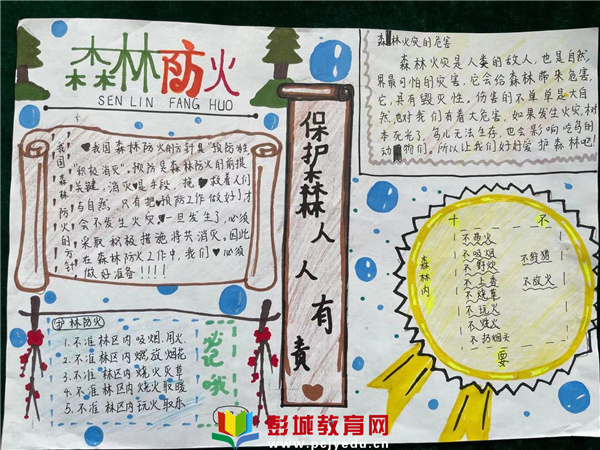 森林防火
SEN LIN FANG HUO
我国森林防火的方针
我国森林防火的方针是"预防胜
"积极消灭".预防是森林防火的前提
关键,消灭
手段,
救着人们
与自然,只有把 预防工作做好了才
会不发生火灾 一旦发生了,必须
采取积极措施将其消灭。因此
在森林防火工作中,我们 必须
做好准备!!!!
保护森林人人有责
森林火灾的危害
森林火灾是人类的敌人,也是自然
界最可怕的灾害,它会给森林带来危害,
它,具有毁灭性。伤害的不单单是大自
然,也对我们有着大危害,如果发生火灾,树
木死光了,鸟儿无法生存,也会影响吃鸟的
动物们。所以让我们好好爱护森林吧!
护林防火
1.不准林区内吸烟.用火
2.不准林区内燃放烟花
3.不准林区内烧火灰草
4.不准林区内烧火取暖
5.不准林区内玩火取乐
必记哦
十不要
森林内
不带火
不吸烟
不野炊
不上香
不烧草
不玩火
不烧火
不扔烟头
不狩猎
不放火
彭城教育网
www.pcjyedu.cn